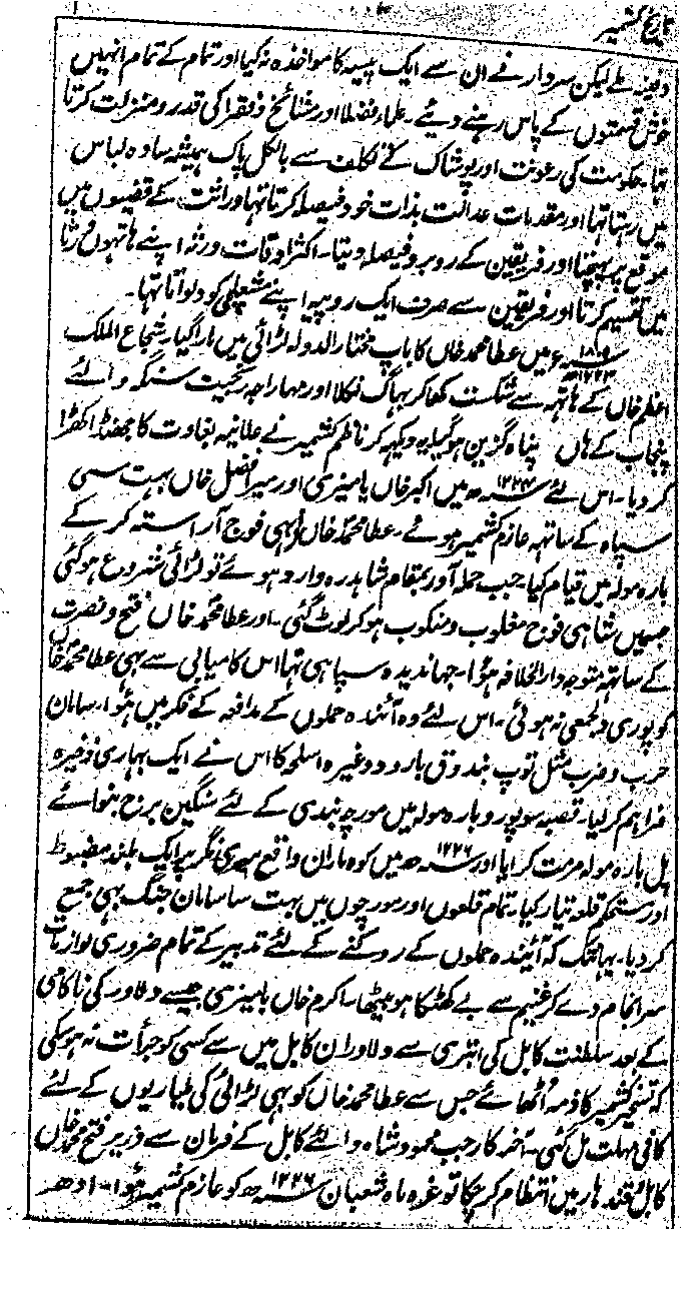 تاریخ کشمیر
دفینہ ملے لیکن سردار نے ان سے ایک پیسہ کا مواخذہ نہ کیا اور تمام کے تمام انہیں
خوش قسمتوں کے پاس رہنے دیئے۔ علماء فضلا اور مشائخ و فقرا کی قدر و منزلت کرتا
تہا۔ حکومت کی رعونت اور پوشاک کے تکلف سے بالکل پاک ہمیشہ سادہ لباس
میں رہتا تہا اور مقدمات عدالت بذات خود فیصلہ کرتا تہا وراثت کے قضیوں میں
موقع پر پہنچتا اور فریقین کے روبرو فیصلہ دیتا۔ اکثر اوقات ورثہ اپنے ہاتہوں
میں تقسیم کرتا اور فریقین سے صرف ایک روپیہ اپنے مشعلچی کو دلواتا تہا۔
۱۸۰۹ء ۱۲۲۳ھ میں عطا محمد خاں کا باپ مختار الدولہ لڑائی میں مارا گیا۔ شجاع الملک
اعظم خاں کے ہاتہہ سے شکست کہا کر بہاگ نکلا اور مہاراجہ رنجیت سنگہ والئے
پنجاب کے ہاں پناہ گزین ہو گیا۔ یہ دیکہہ کر ناظم کشمیر نے علانیہ بغاوت کا جھنڈا کھڑا
کر دیا۔ اس لئے ۱۲۲۴ھ میں اکبر خاں بامیزی اور میر افضل خاں بہت سی
سپاہ کے ساتہہ عازم کشمیر ہوئے۔ عطا محمد خاں بہی فوج آراستہ کر کے
بارہ مولہ میں قیام کیا۔ جب حملہ آور بمقام شاہدرہ وارد ہوئے تو لڑائی شروع ہو گئی
جسمیں شاہی فوج مغلوب و منکوب ہو کر لوٹ گئی۔ اور عطا محمد خاں فتح و نصرت
کے ساتہہ متوجہ دارالخلافہ ہؤا۔ جہاندیدہ سپاہی تہا اس کامیابی سے بہی عطا محمد خاں
کو پوری دلجمعی نہ ہوئی۔ اس لئے وہ آئندہ حملوں کے مدافعہ کے فکر میں ہؤا۔ سامان
حرب و ضرب مثل توپ بندوق بارود وغیرہ اسلحہ کا اس نے ایک بہاری ذخیرہ
فراہم کر لیا۔ قصبہ سوپور و بارہ مولہ میں مورچہ بندی کے لئے سنگین برج بنوائے
پل بارہ مولہ مرمت کرایا اور ۱۲۲۶ھ میں کوہ ماران واقع سری نگر پر ایک بلند مضبوط
اور مستحکم قلعہ تیار کیا۔ تمام قلعوں اور مورچوں میں بہت سا سامان جنگ بہی جمع
کر دیا۔ یہانتک کہ آئیندہ حملوں کے روکنے کے لئے تدبیر کے تمام ضروری لوازمات
سرانجام دے کر غنیم سے بے کھٹکا ہو بیٹھا۔ اکرم خاں بامیزی جیسے دلاور کی ناکامی
کے بعد سلطنت کابل کی ابتری سے دلاوران کابل میں سے کسی کو جرأت نہ ہو سکی
کہ تسخیر کشمیر کا ذمہ اُٹھائے جس سے عطا محمد خاں کو بہی لڑائی کی طیاریوں کے لئے
کافی مہلت مل گئی۔ آخر کار جب محمود شاہ والئے کابل کے فرمان سے وزیر فتح محمد خاں
کابل و قندہار میں انتظام کر چکا تو غرہ ماہ شعبان ۱۲۲۶ھ کو عازم کشمیر ہؤا۔ ادہر